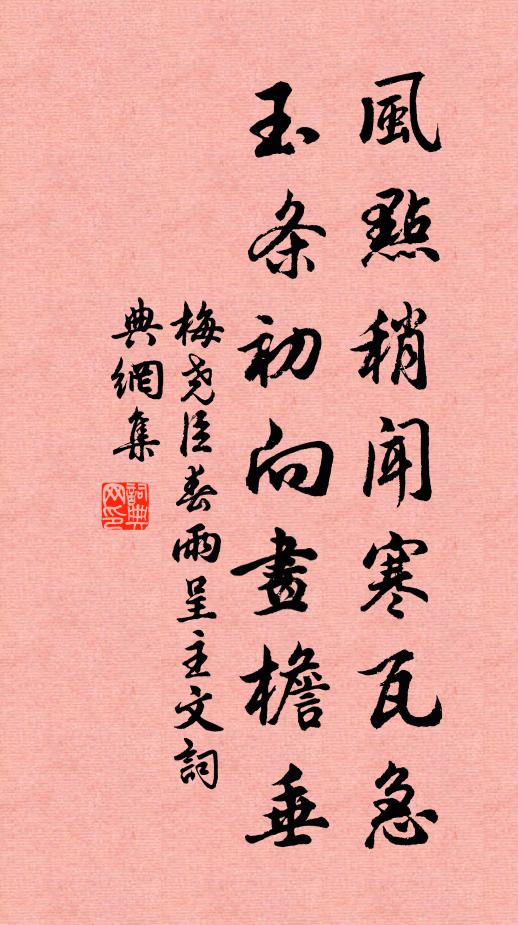 風點稍聞寒瓦急
玉条初向畫檐垂
梅尧臣春雨呈主文詞
典網集
詞典
网印